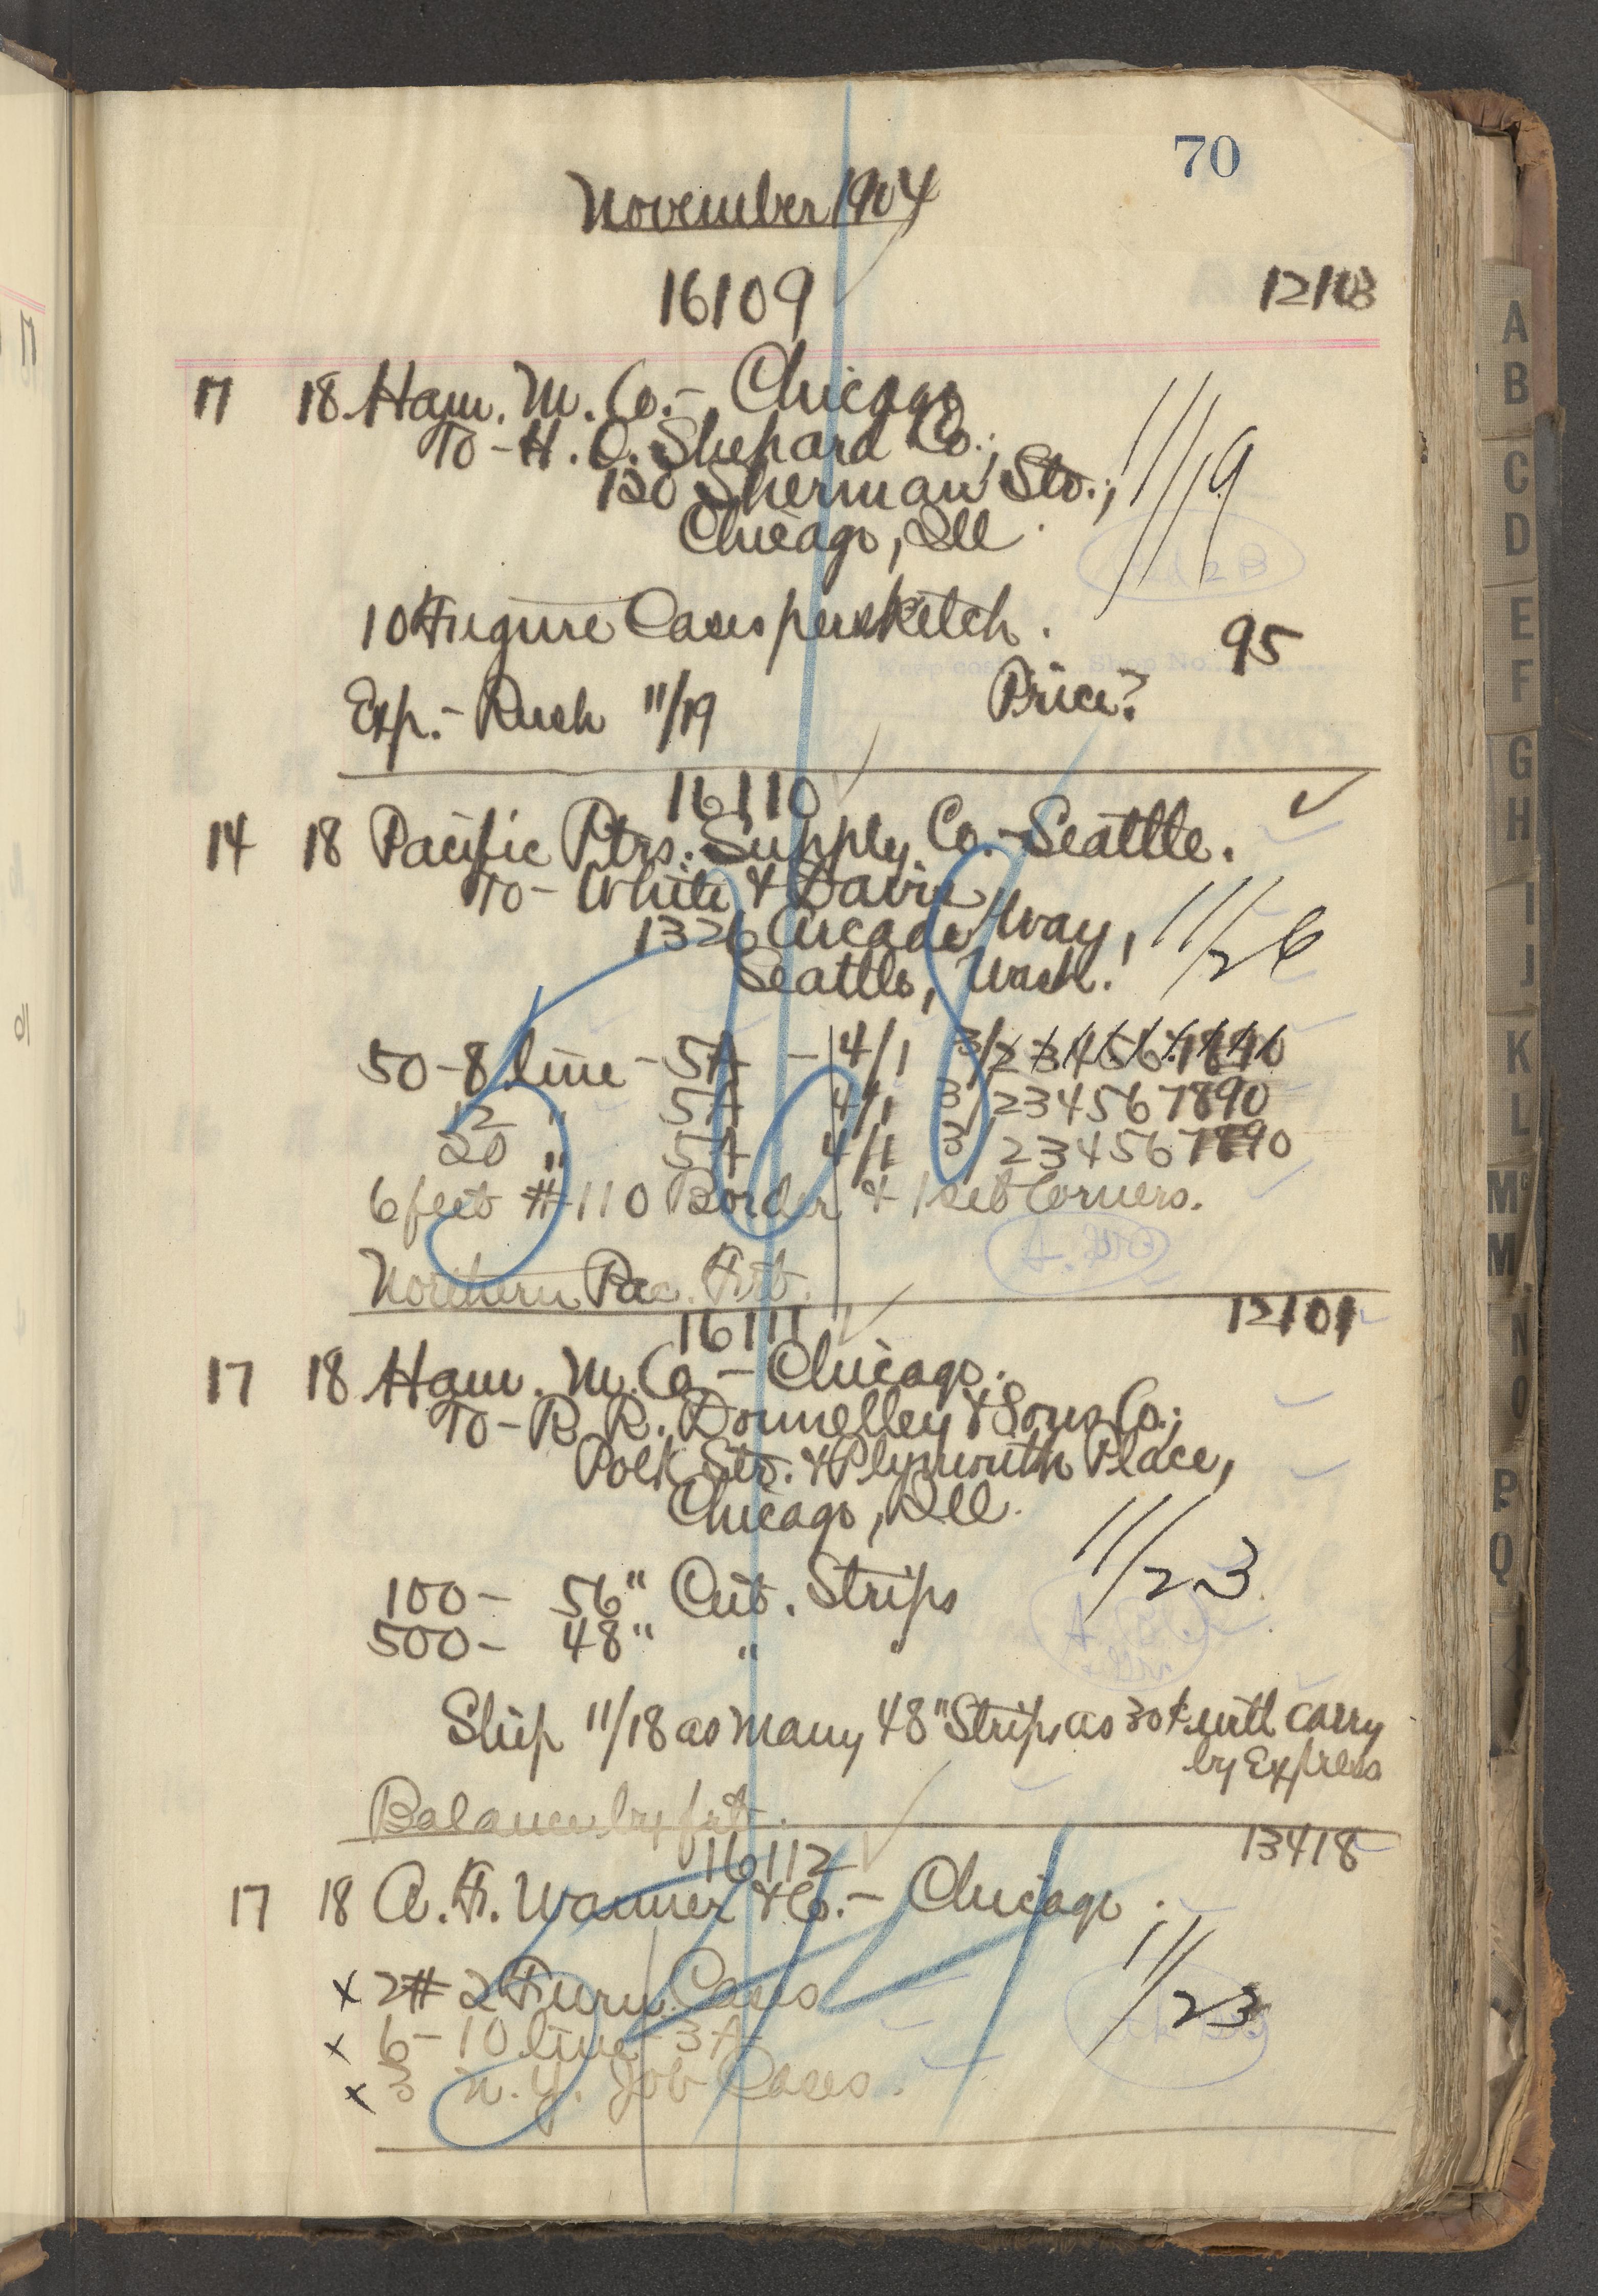 70
November 1904
16109
17 18 Ham. M. Co. - Chicago
To - H. O. Shepard Co.,
130 Sherman Str.,
Chicago, Ill.
11/19
10 Figure Cases per sketch. 95
Exp. - Rush 11/19 Price?
16110
14 18 Pacific Ptrs. Supply Co. - Seattle.
To - White & Davis
1326 Arcade Way,
Seattle, Wash.
11/26
50 - 8 line - 5A - 4/1 3/2 3 4 5 6 7 8 9 0
12 " 5A 4/1 3/2 3 4 5 6 7 8 9 0
20 " 5A 4/1 3/2 3 4 5 6 7 8 9 0
6 feet # 110 Border & 1 set Corners.
Northern Pac. Frt.
16111 12101
17 18 Ham. M. Co. - Chicago.
To - R. R. Donnelley & Sons Co.,
Polk Str. & Plymouth Place,
Chicago, Ill.
11/23
100 - 56" Cut. Strips
500 - 48" " "
Ship 11/18 as many 48" Strips as 30¢ will carry
by Express
Balance by frt.
16112 13418
17 18 A. F. Wanner & Co. - Chicago.
11/23
x 2 # 2 Furn. Cases
x 6 - 10 line 3A
x 3 N. Y. Job Cases.
A
B
C
D
E
F
G
H
I
J
K
L
Mc
M
N
O
P
Q